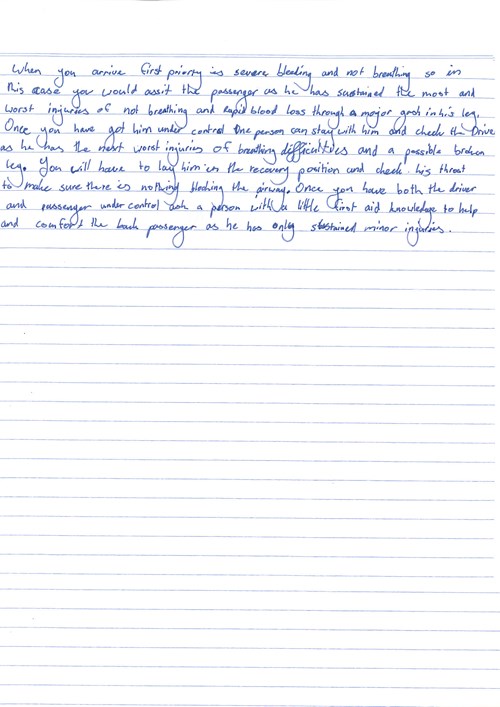 When you arrive first priority is severe bleeding and not breathing so in
this case you would assit the passenger as he has sustained the most and
worst injuries of not breathing and rapid blood loss through a major gash in his leg.
Once you have got him under control one person can stay with him and check the Drive
as he has the next worst injuries of breathing difficulties and a possible broken
leg. You will have to lay him in the recovery position and check his throat
to make sure there is nothing blocking the airway. Once you have both the driver
and passenger under control ask a person with a little first aid knowledge to help
and comfort the back passenger as he has only sustained minor injuries.